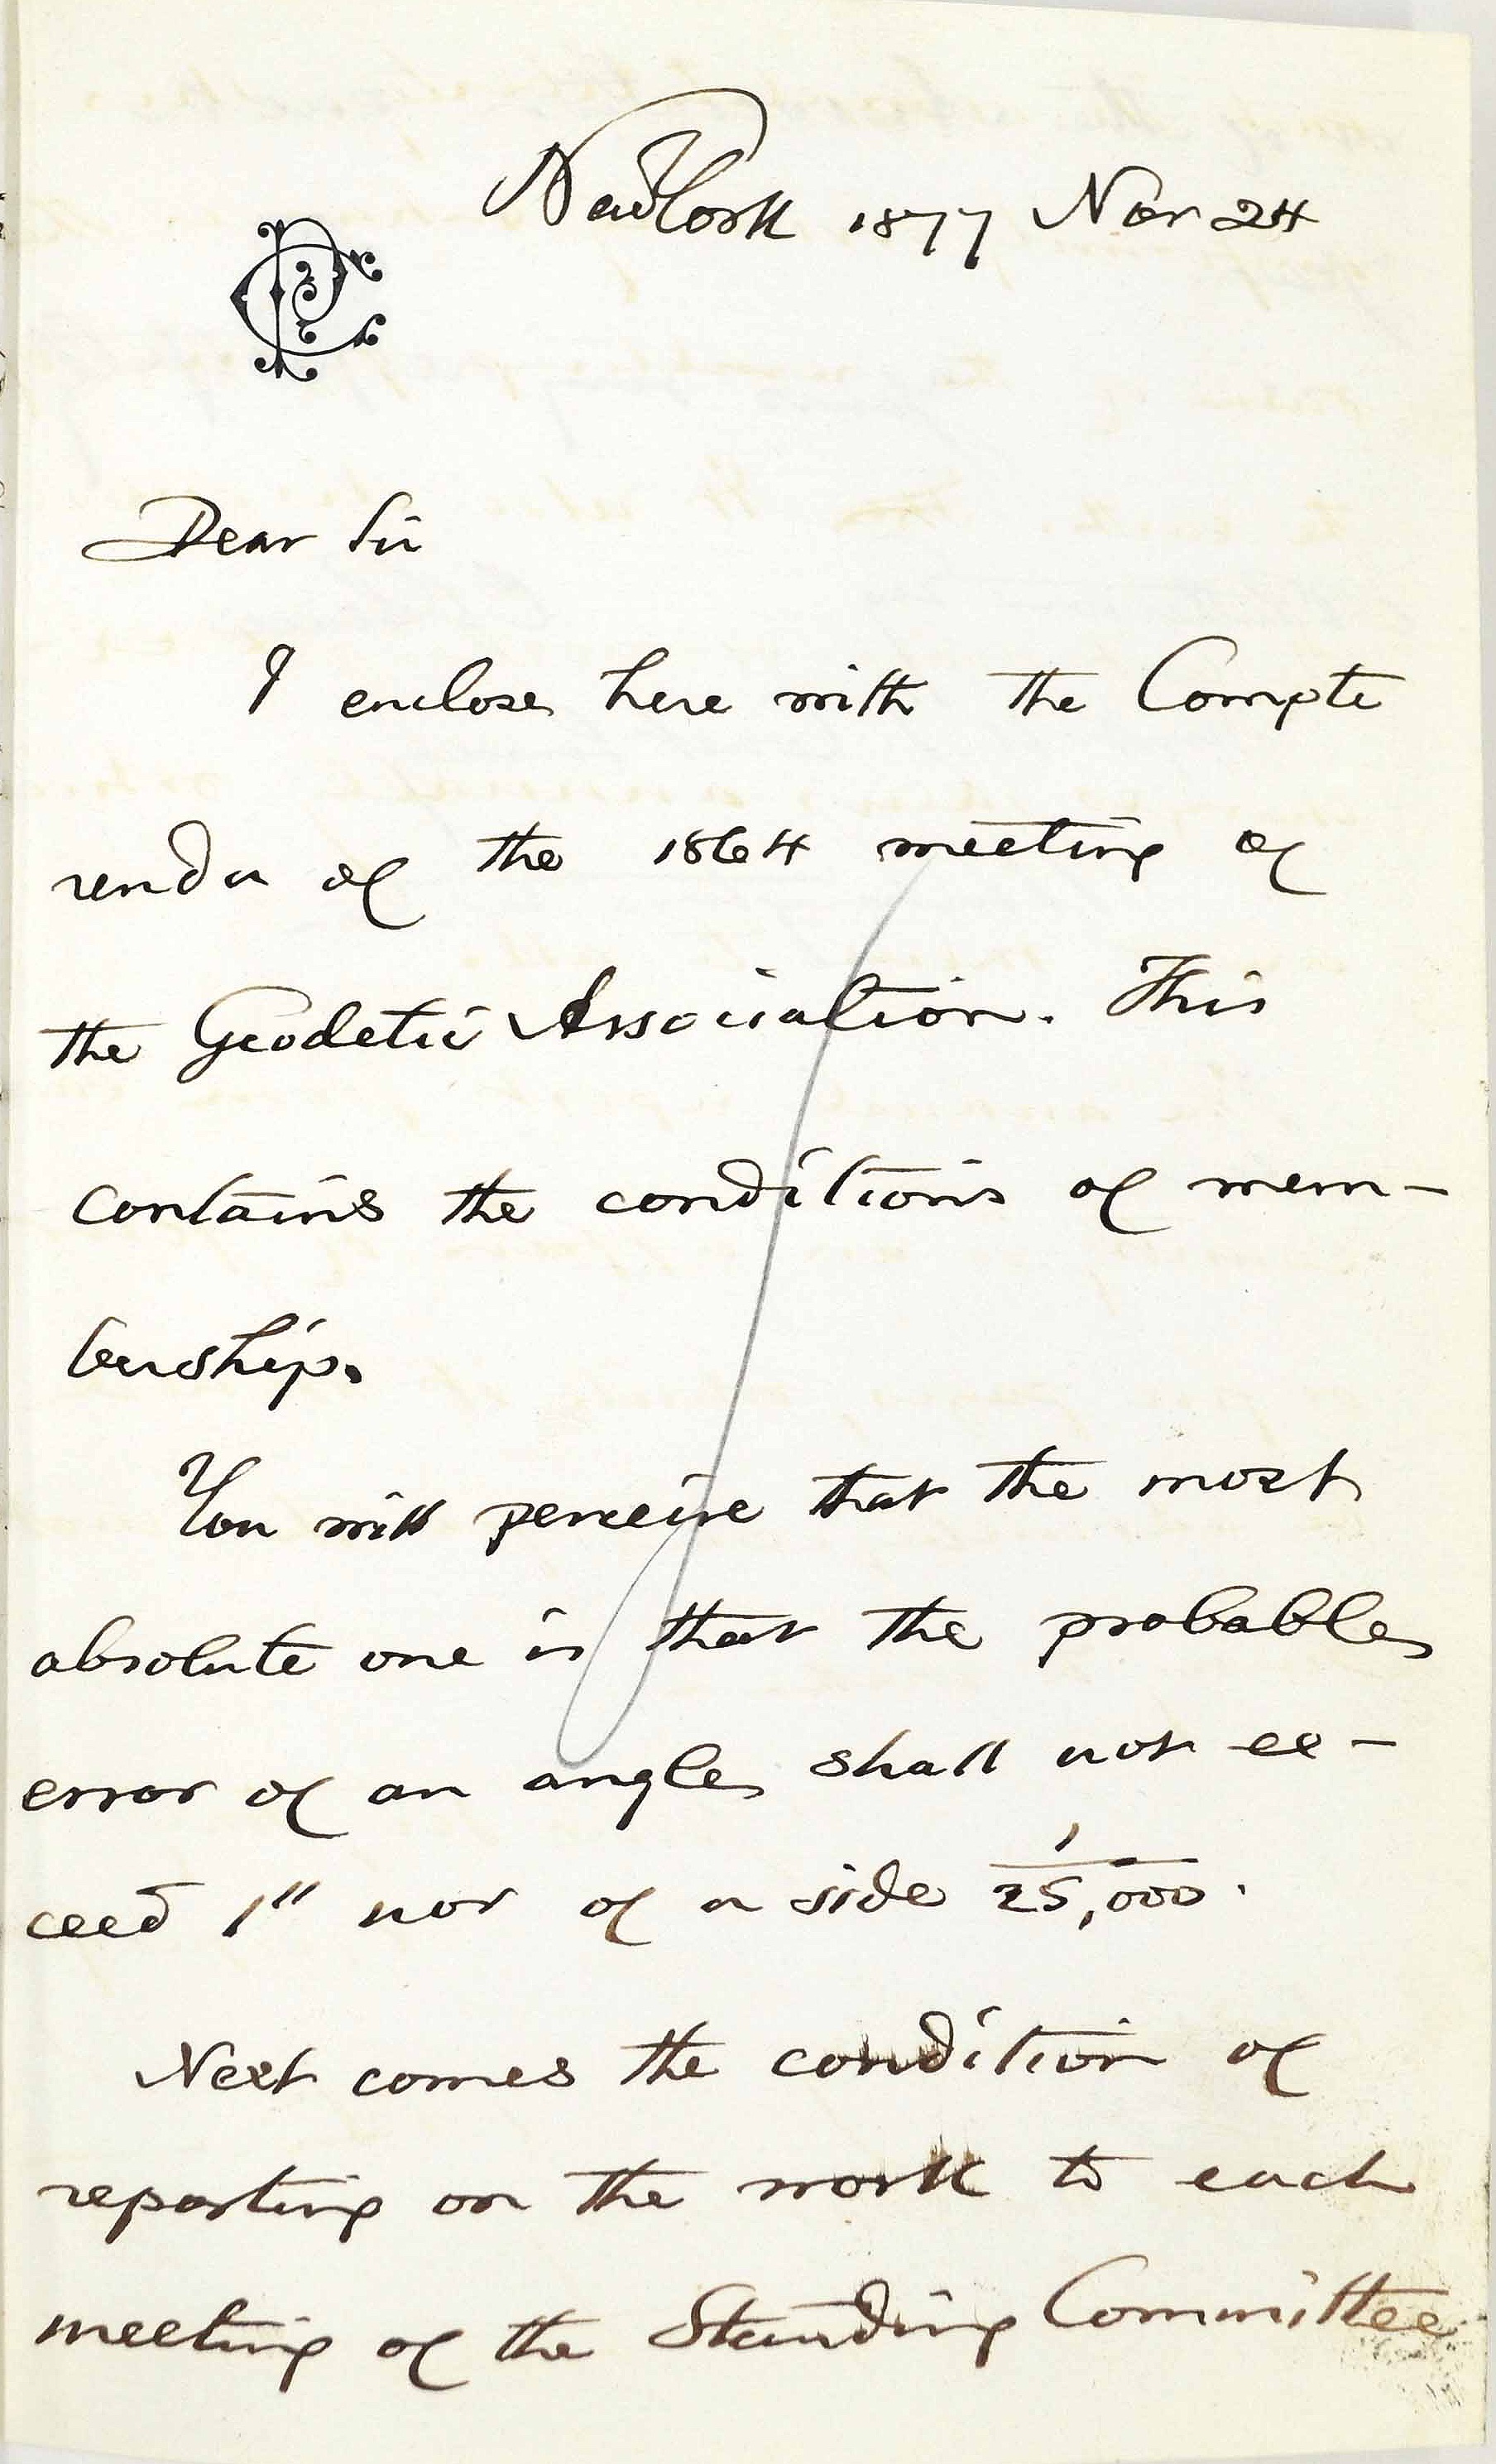 New York 1877 Nov 24
Dear Sir
I enclose here with the Compte
rendu of the 1864 meeting of
the Geodetic Association. This
contains the conditions of mem-
bership.
You will perceive that the most
absolute one is that the probable
error of an angle shall not ex-
ceed 1" nor of a side 1/25,000.
Next comes the condition of
reporting on the work to each
meeting of the Standing Committee